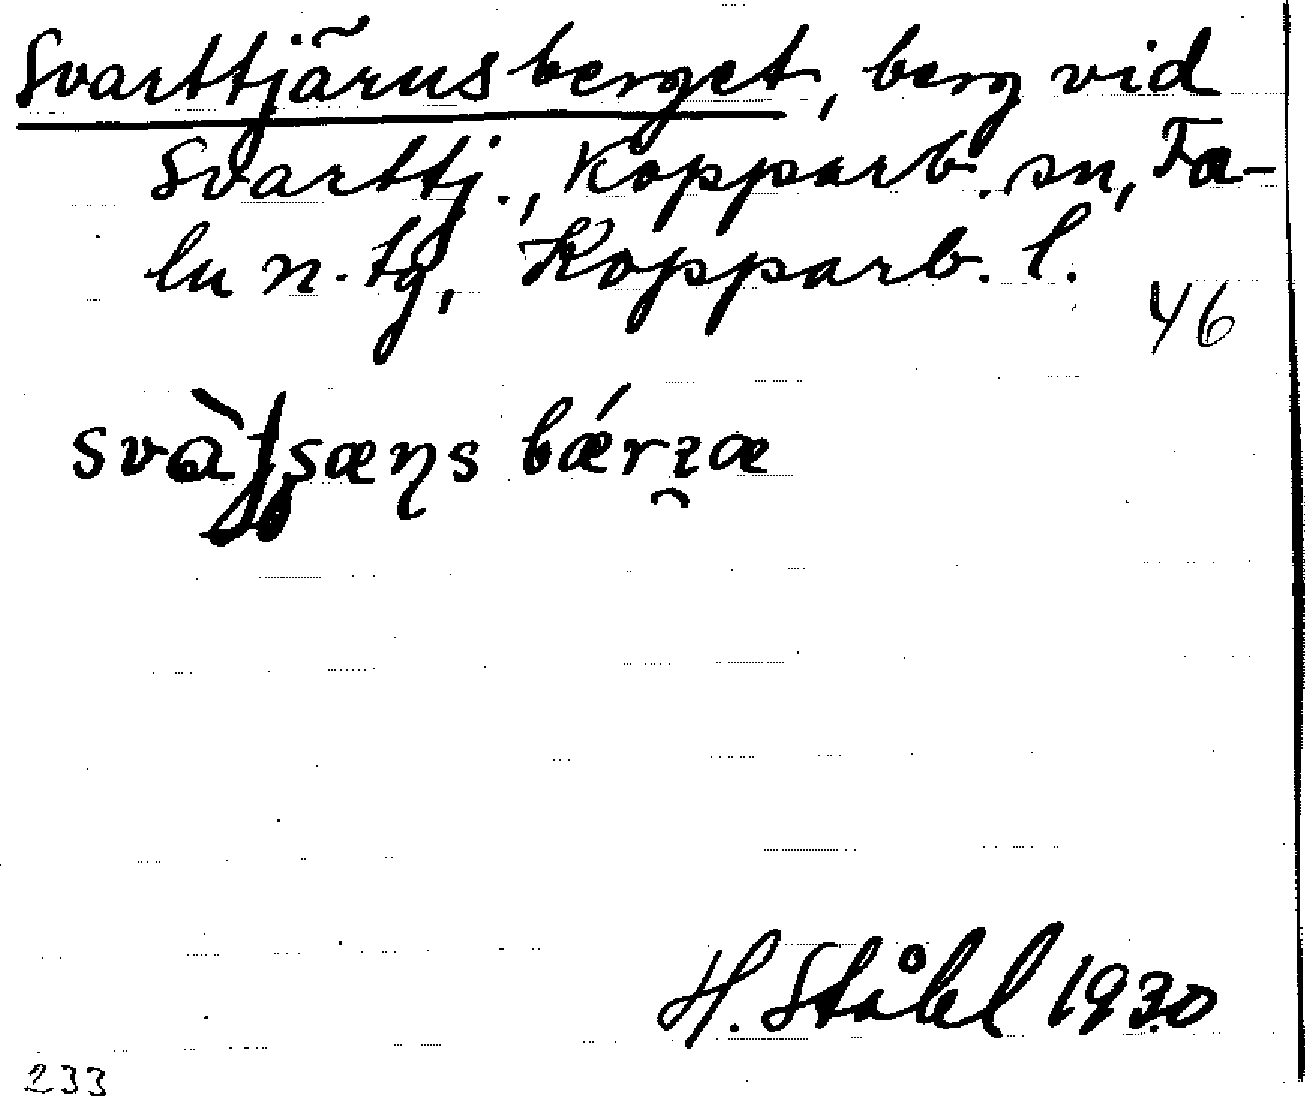 Svarttjärnsberget, berg vid
Svarttj., Kopparb. sn, Fa-
lu n. tg, Kopparb. l.
46
H. Ståhl 1930
233